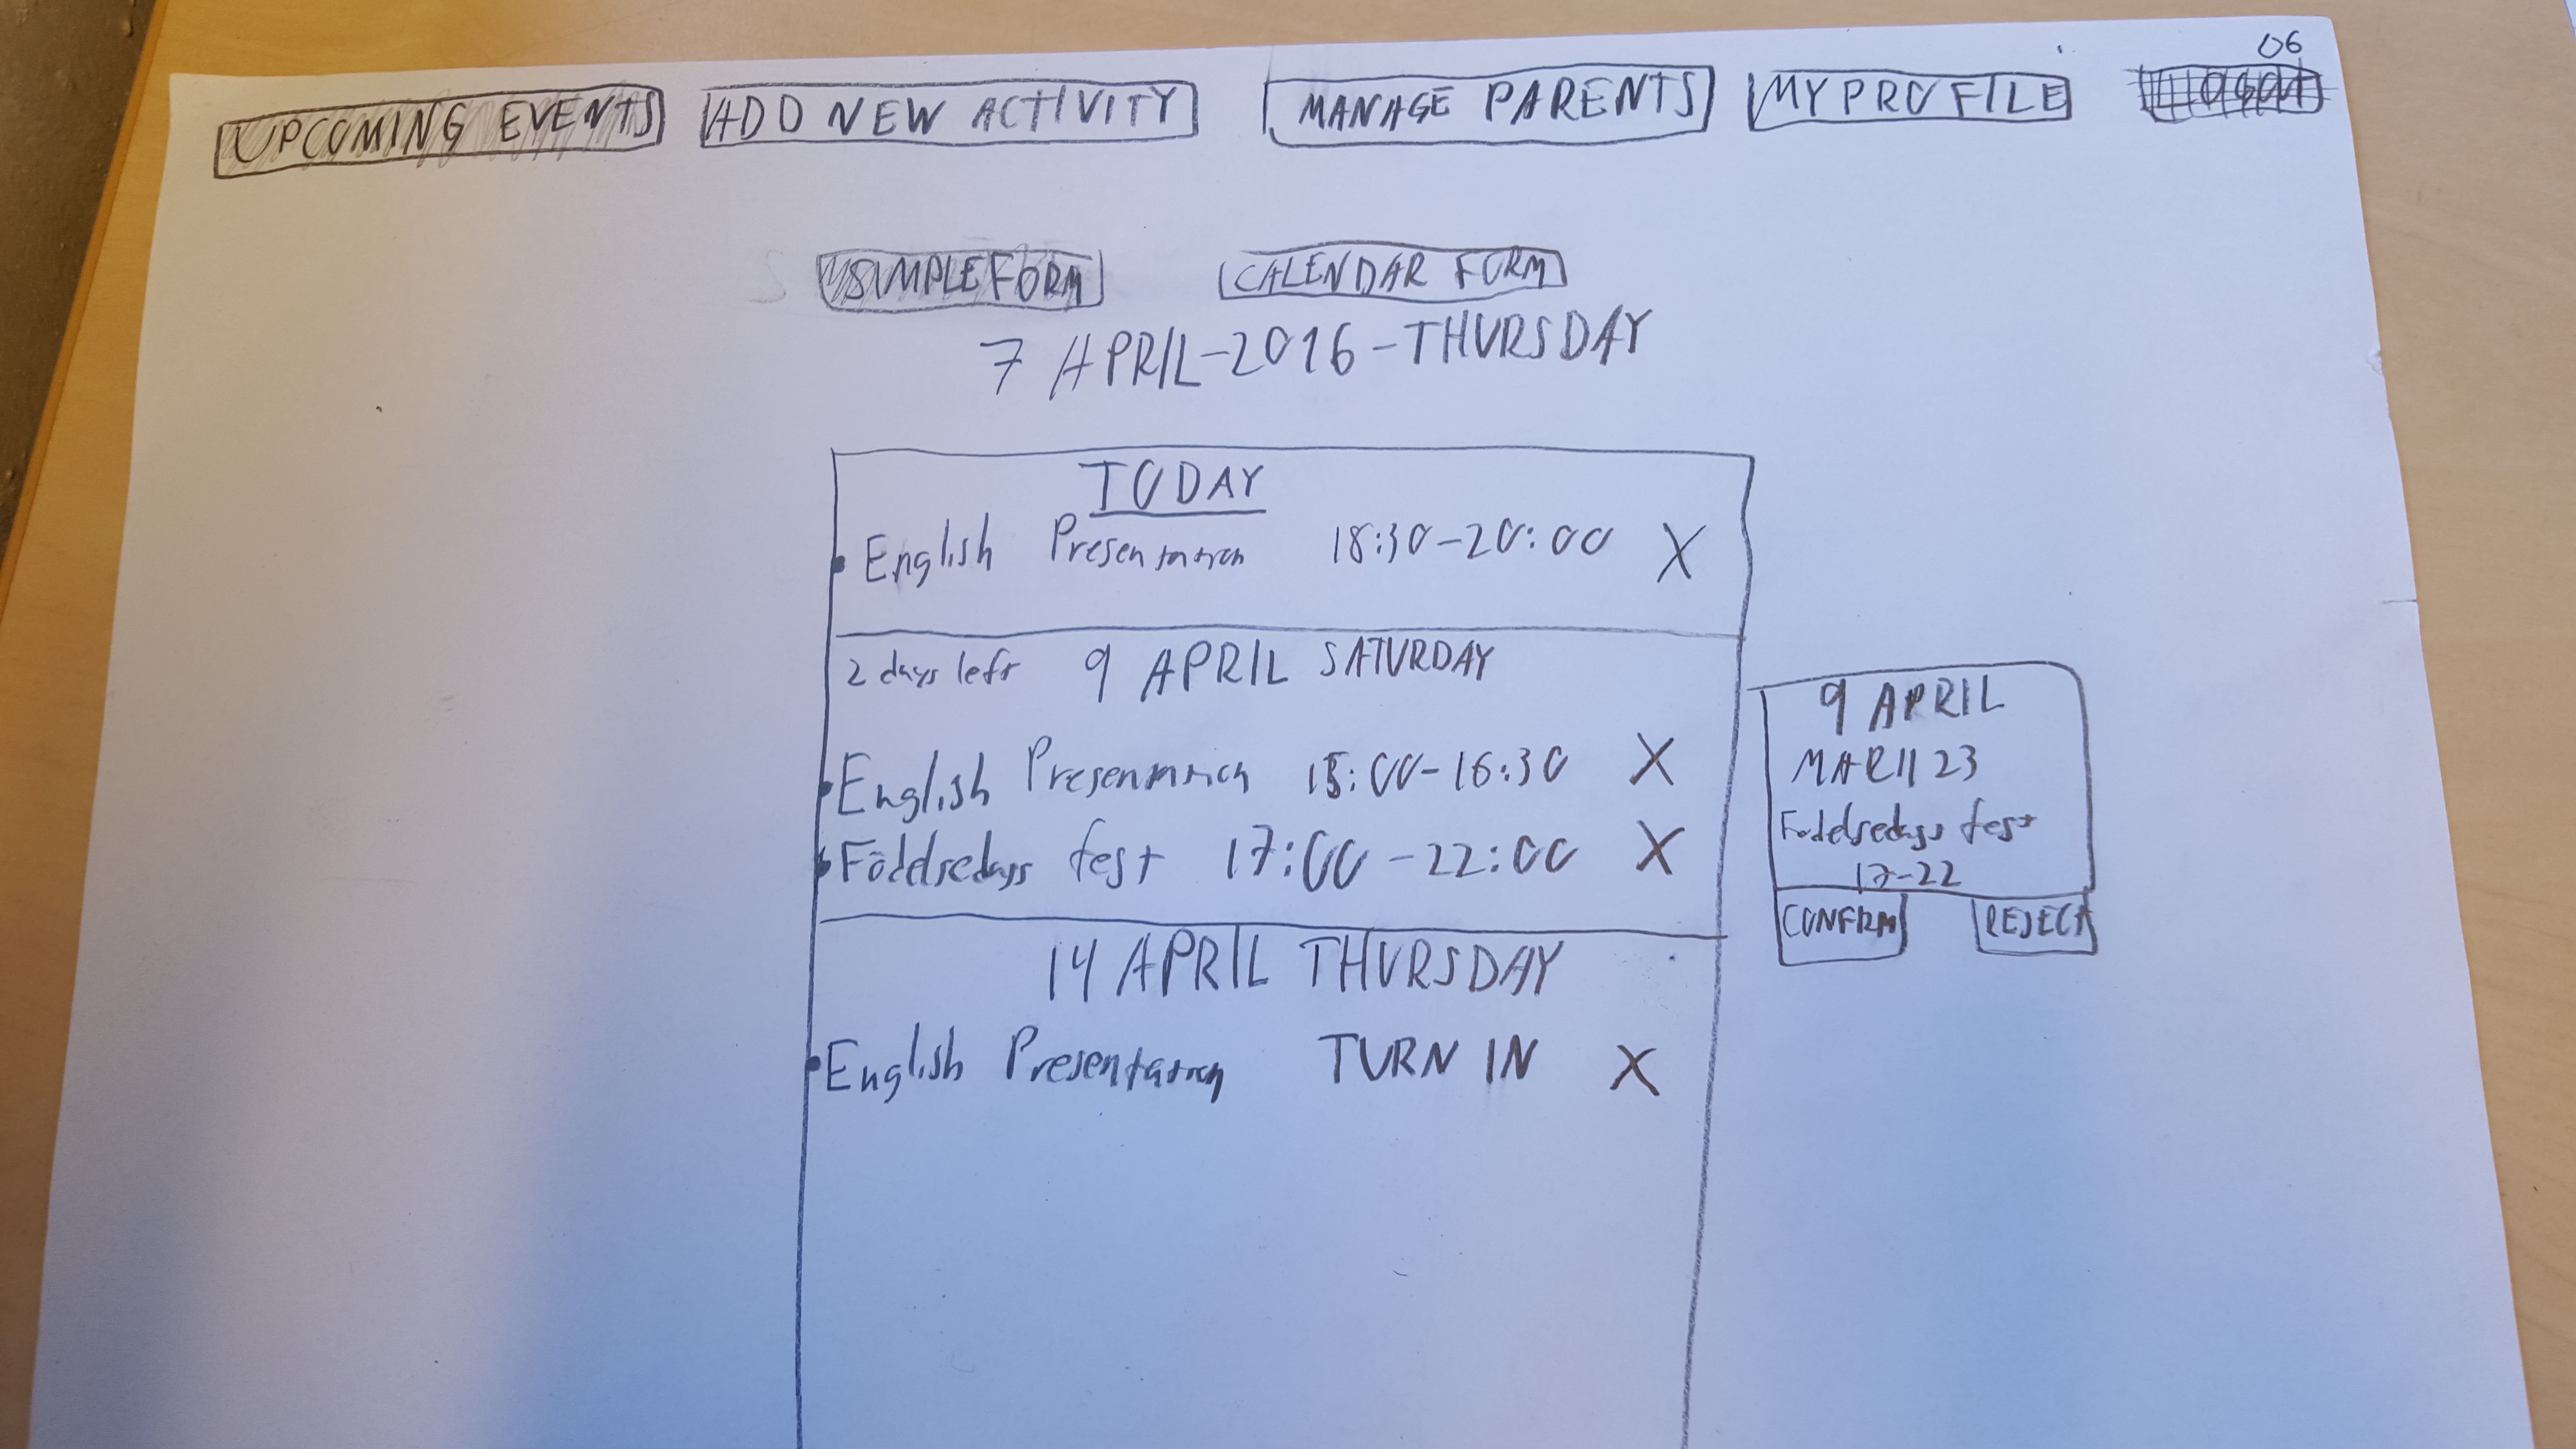 06
UPCOMING EVENTS ADD NEW ACTIVITY MANAGE PARENTS MY PROFILE
SIMPLE FORM CALENDAR FORM
7 APRIL-2016-THURSDAY
TODAY
English Presentation 18:30-20:00 X
2 days left 9 APRIL SATURDAY
English Presentation 15:00-16:30 X
Födelsedags fest 17:00-22:00 X
14 APRIL THURSDAY
English Presentation TURN IN X
9 APRIL
MARII23
Födelsedags fest
17-22
CONFIRM REJECT